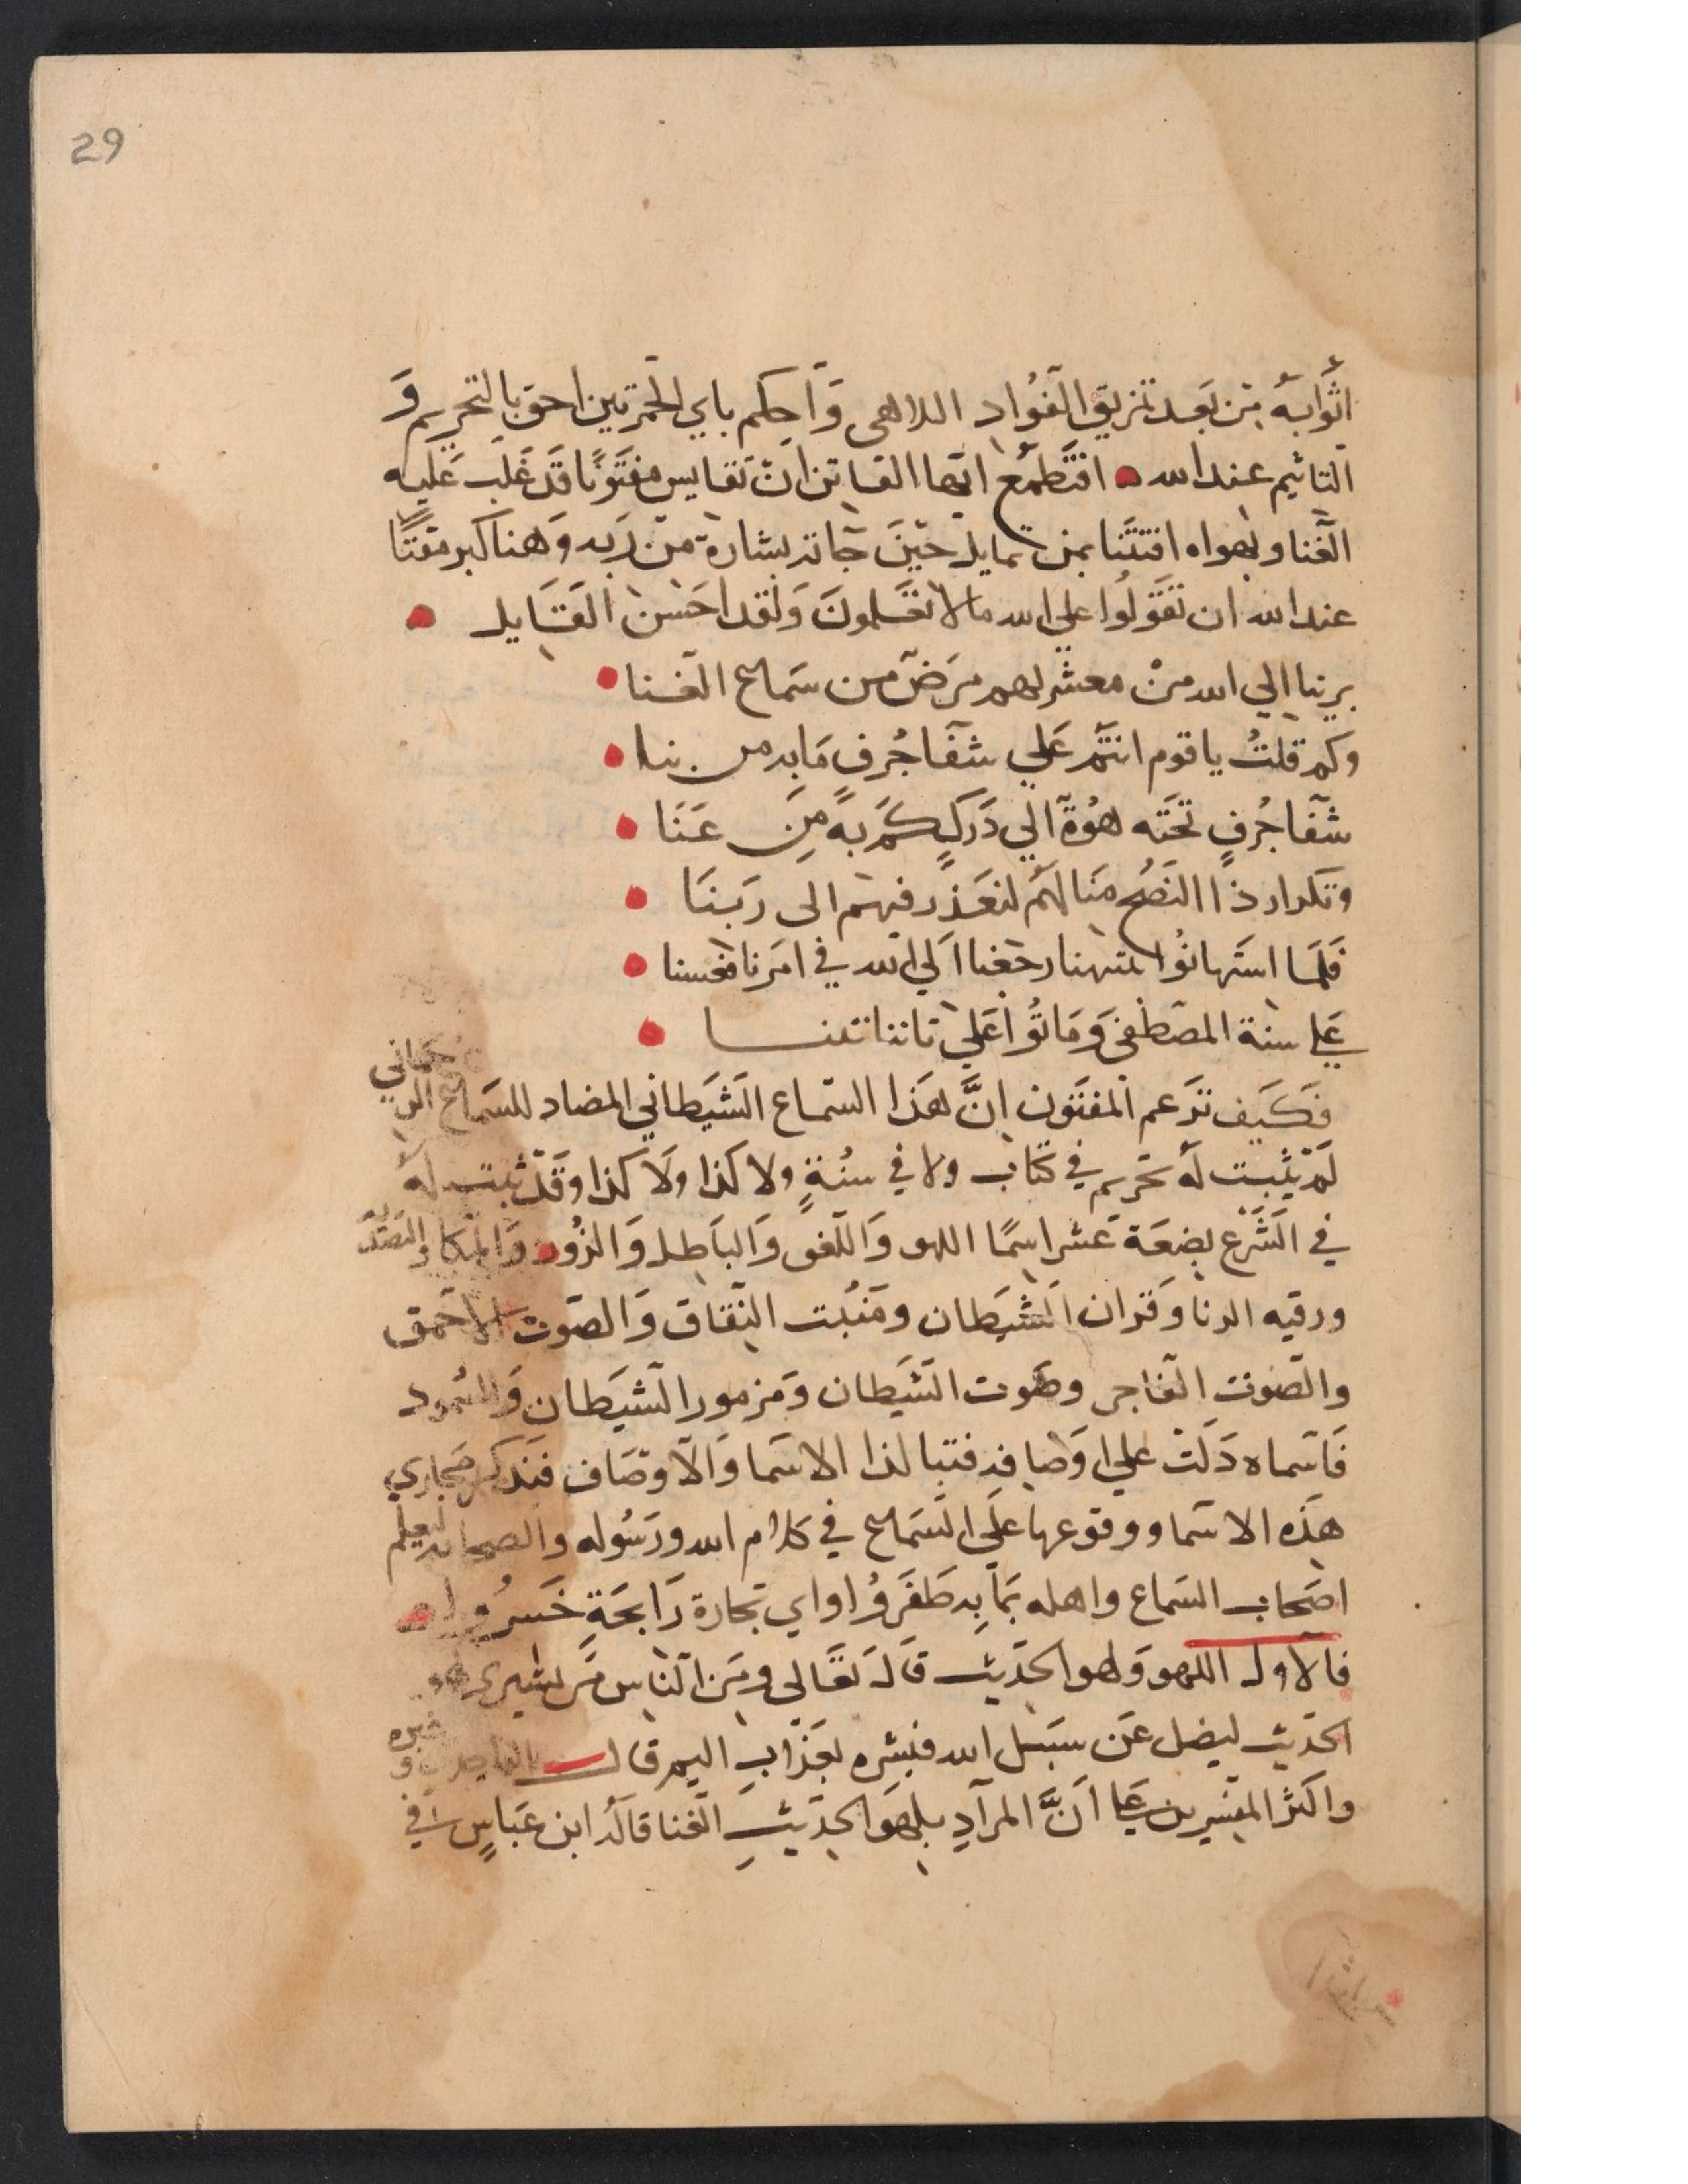 29
اثوابه من بعد تمزيق الفؤاد اللاهي واحكم باي الخمرتين احق بالتحريم و
التاثيم عند الله افتطمع ايها الفاتن ان تقايس مفتونا قد غلب عليه
الغنا وهواه افتتنا بمن تمايل حين جاته بشارة من ربه وهنا كبر مقتا
عند الله ان تقولوا علي الله مالا تعلمون ولقد احسن القايل
برينا الي الله من معشر لهم مرض من سماع الغنا
وكم قلت ياقوم انتم علي شفا جرف مابه من بنا
شفا جرف تحته هوة الي درك كم به من عنا
وتكرار ذا النصح منا لهم لنعذر فيهم الى ربنا
فلما استهانوا بتنبيهنا رجعنا الي الله في امرنا فعسنا
علي سنة المصطفى وماتوا علي تاتنا تنتنا
فكيف تزعم المفتون ان هذا السماع الشيطاني المضاد للسماع الرحماني
لم يثبت له تحريم في كتاب ولا في سنة ولا كذا ولا كذا وقد ثبت له
في الشرع بضعة عشر اسما اللهو واللغو والباطل والزور والمكا والتصديه
ورقيه الزنا وقران الشيطان ومنبت النفاق والصوت الاحمق
والصوت الفاجر وصوت الشيطان ومزمور الشيطان والسمود
فاسماه دلت علي اوصافه فتبا لذا الاسما والاوصاف فنذكر مجاري
هذه الاسما ووقوعها علي السماع في كلام الله ورسوله والصحابه ليعلم
اصحاب السماع واهله بما به ظفروا واي تجارة رابحة خسروا
فالاول اللهو ولهو الحديث قال تعالي ومن الناس من يشتري لهو
الحديث ليضل عن سبيل الله فبشره بعذاب اليم قال الواحدي وغيره
واكثر المفسرين علي ان المراد بلهو الحديث الغنا قاله ابن عباس في